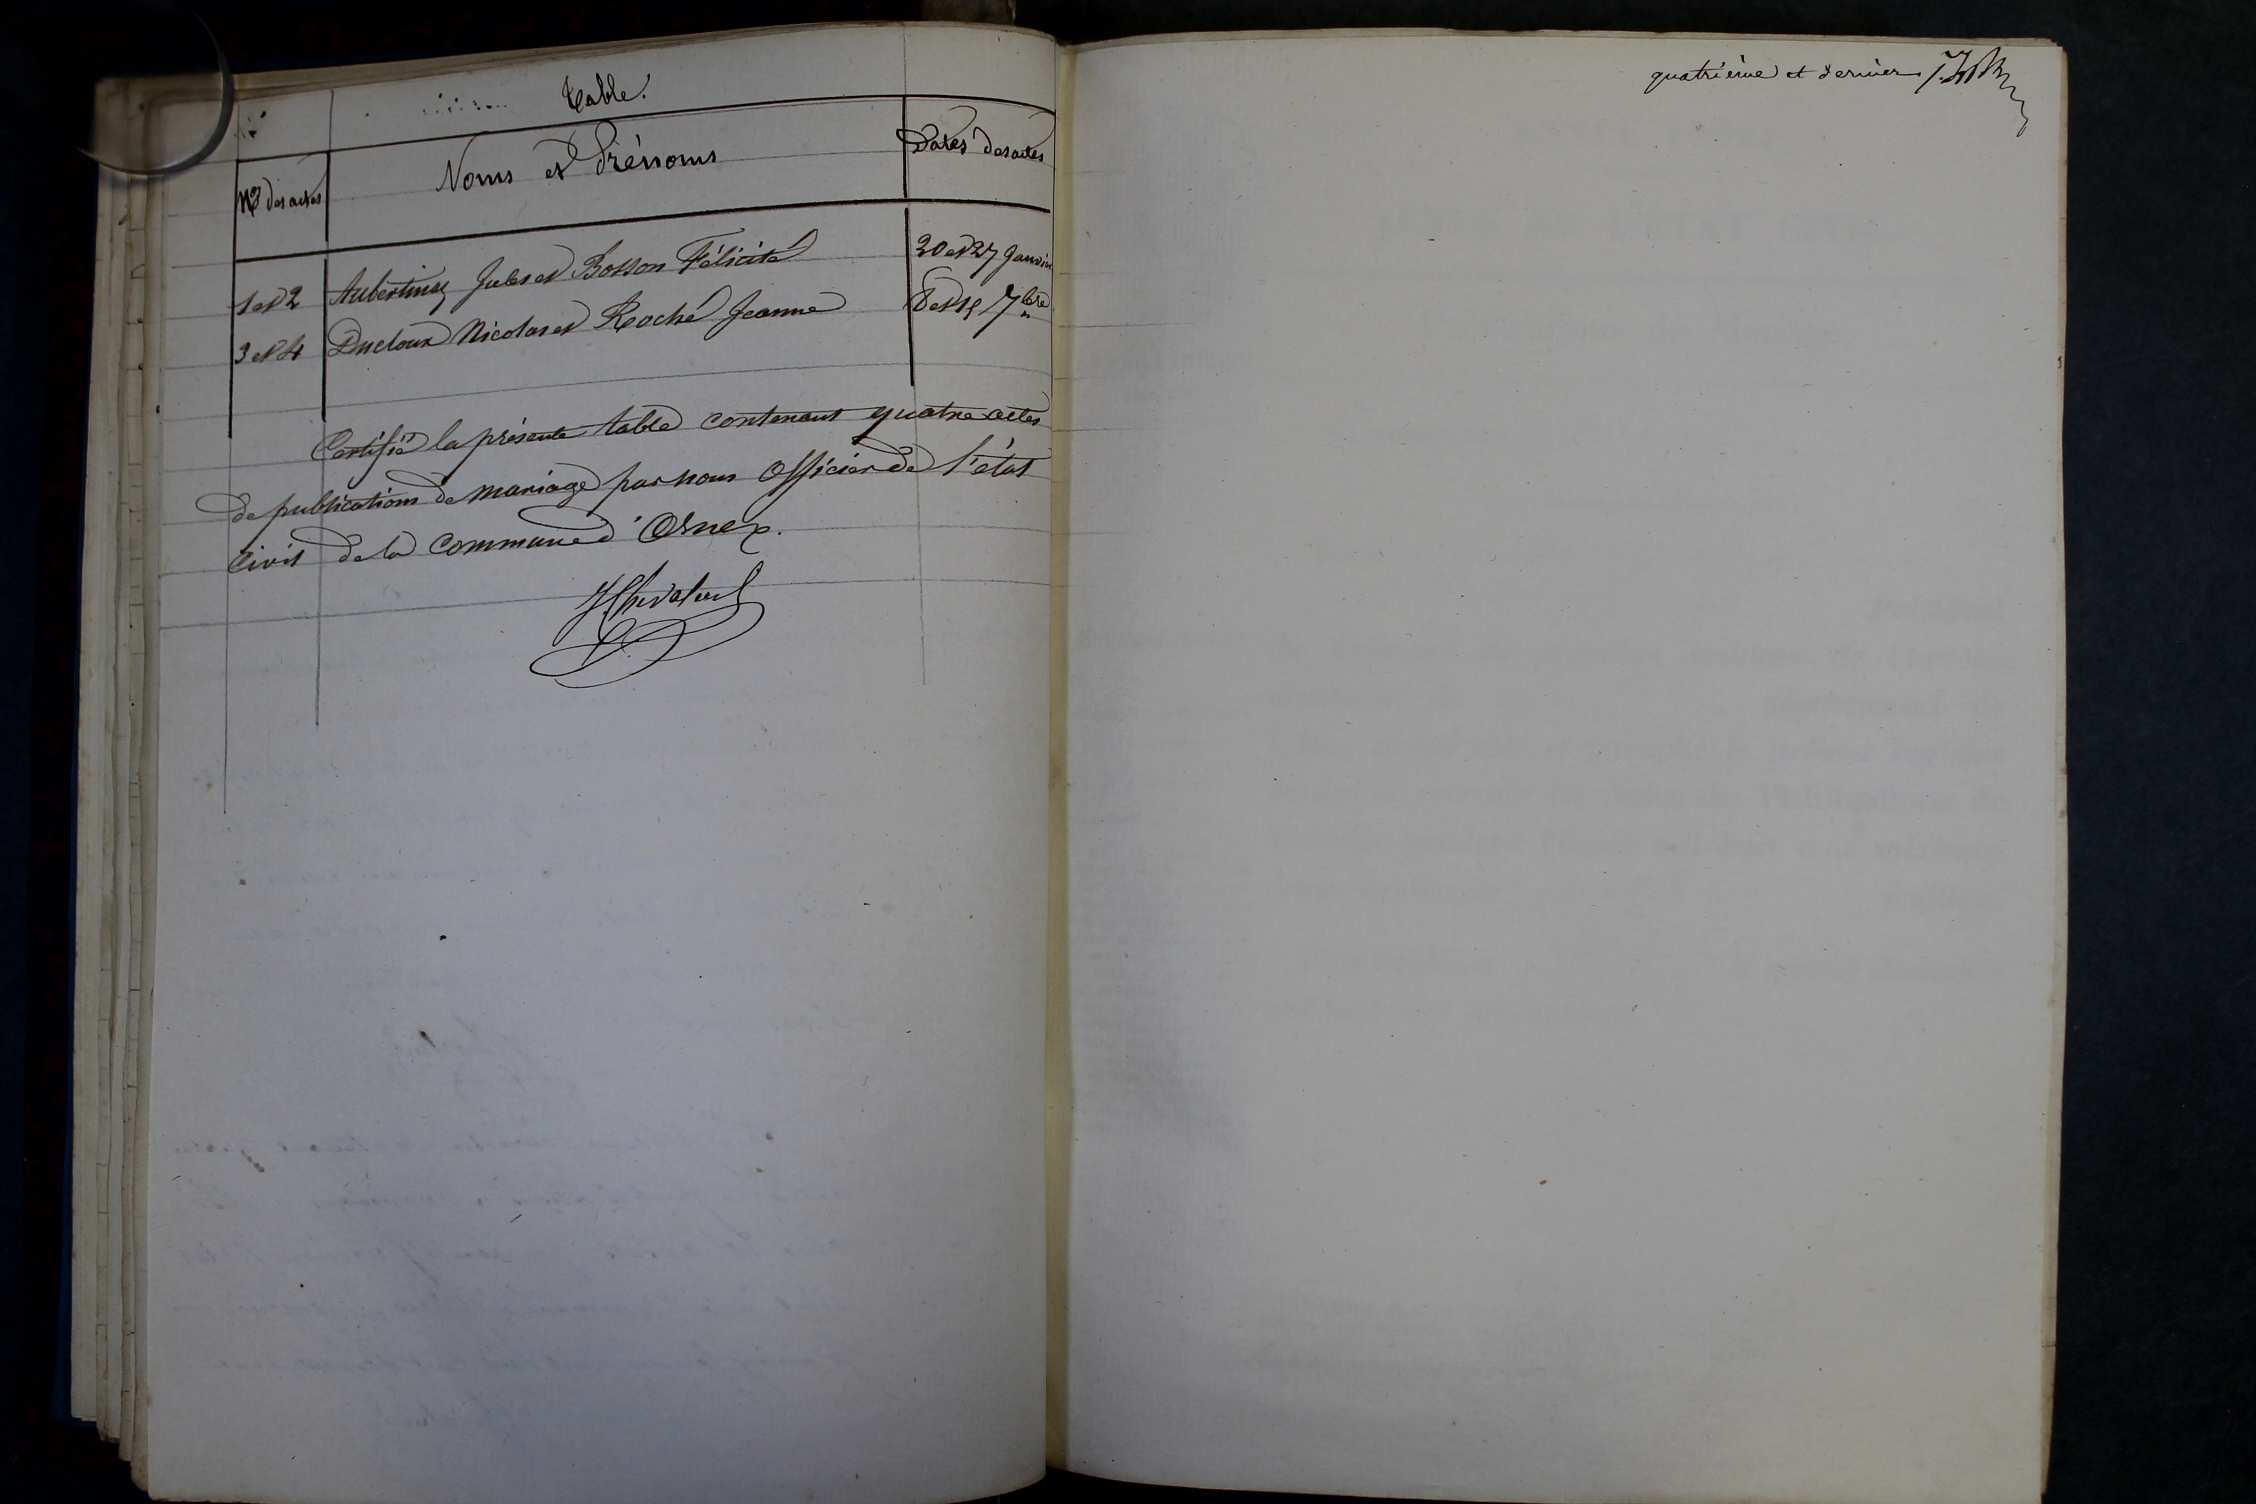 Table.
Nos des actes Noms et Prénoms Dates des actes
1 et 2 Aubertin Jules et Bosson Félicité 20 et 27 Janvier
3 et 4 Ducloux Nicolas et Roché Jeanne 8 et 15 7bre
Certifié la présente table contenant quatre actes
de publications de mariage par nous Officier de l'état
Civil de la Commune d'Ornex.
quatrième et dernier